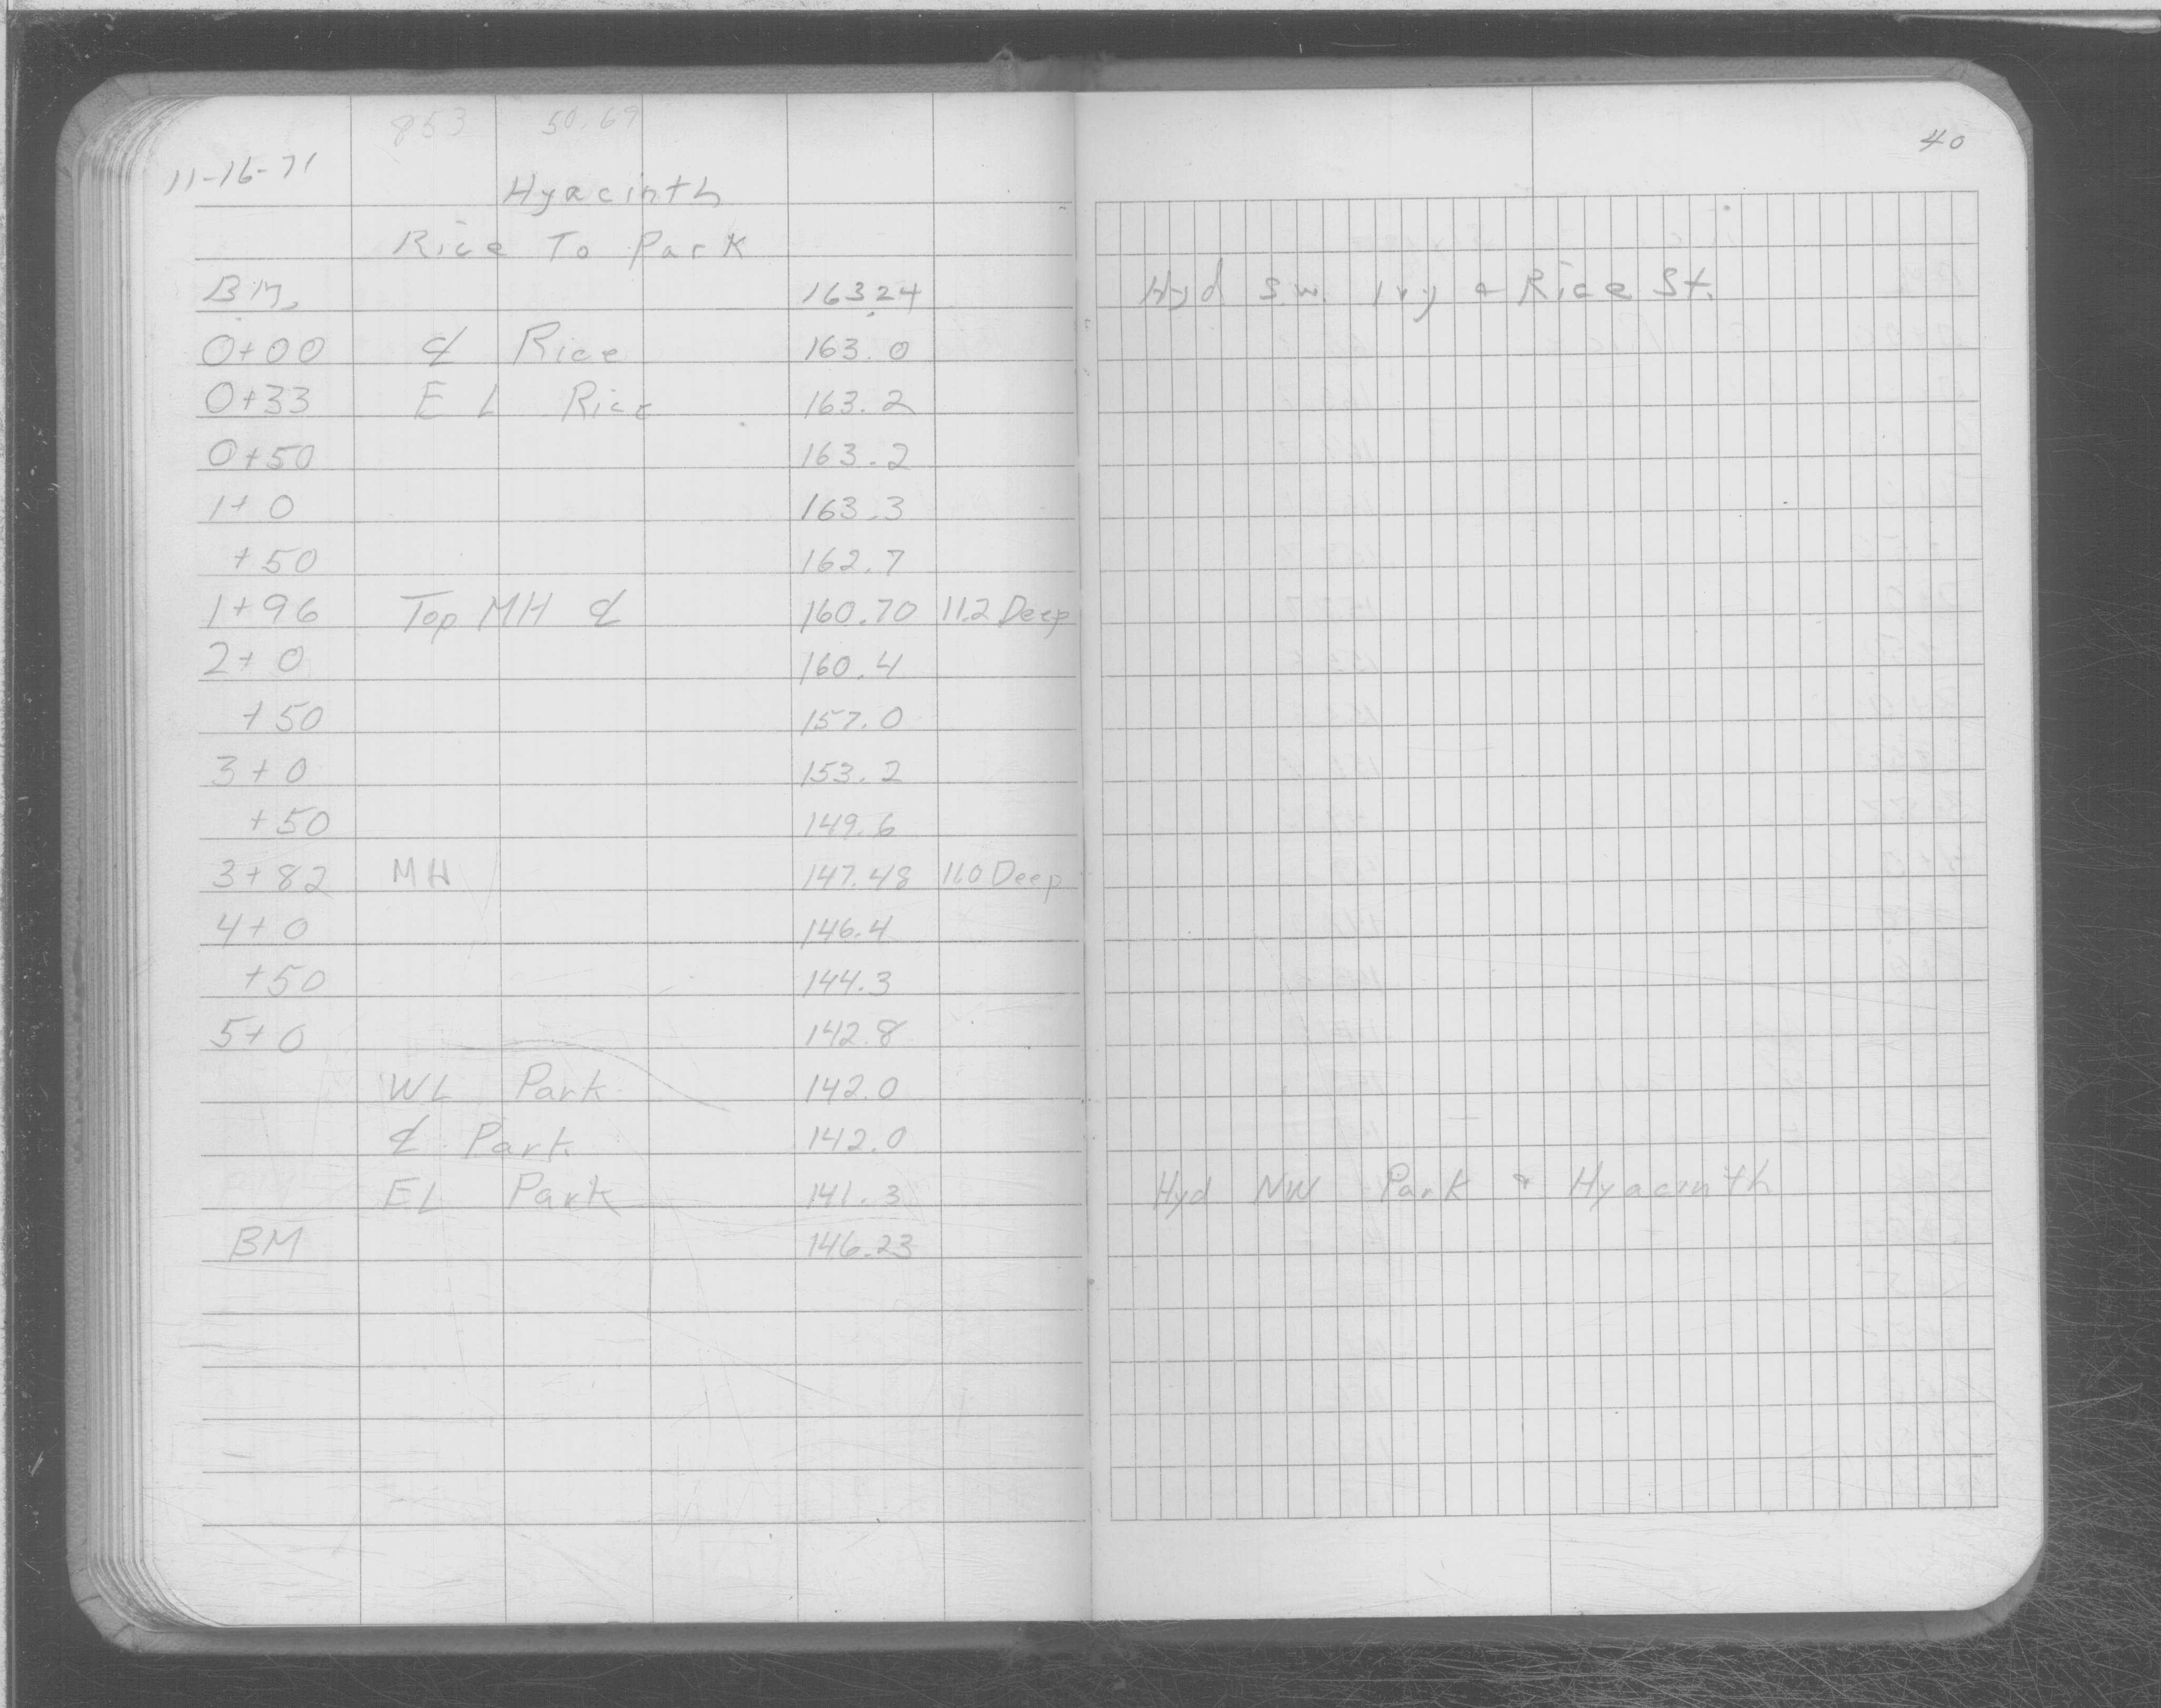 853 50.69
40
11-16-71
Hyacinth
Rice To Park
BM. 163.24 Hyd S.W. Ivy & Rice St.
0+00 ℄ Rice 163.0
0+33 E L Rice 163.2
0+50 163.2
1+0 163.3
+50 162.7
1+96 Top MH ℄ 160.70 11.2 Deep
2+0 160.4
+50 157.0
3+0 153.2
+50 149.6
3+82 MH 147.48 11.0 Deep
4+0 146.4
+50 144.3
5+0 142.8
WL Park 142.0
℄ Park 142.0
EL Park 141.3 Hyd NW Park & Hyacinth
BM 146.23